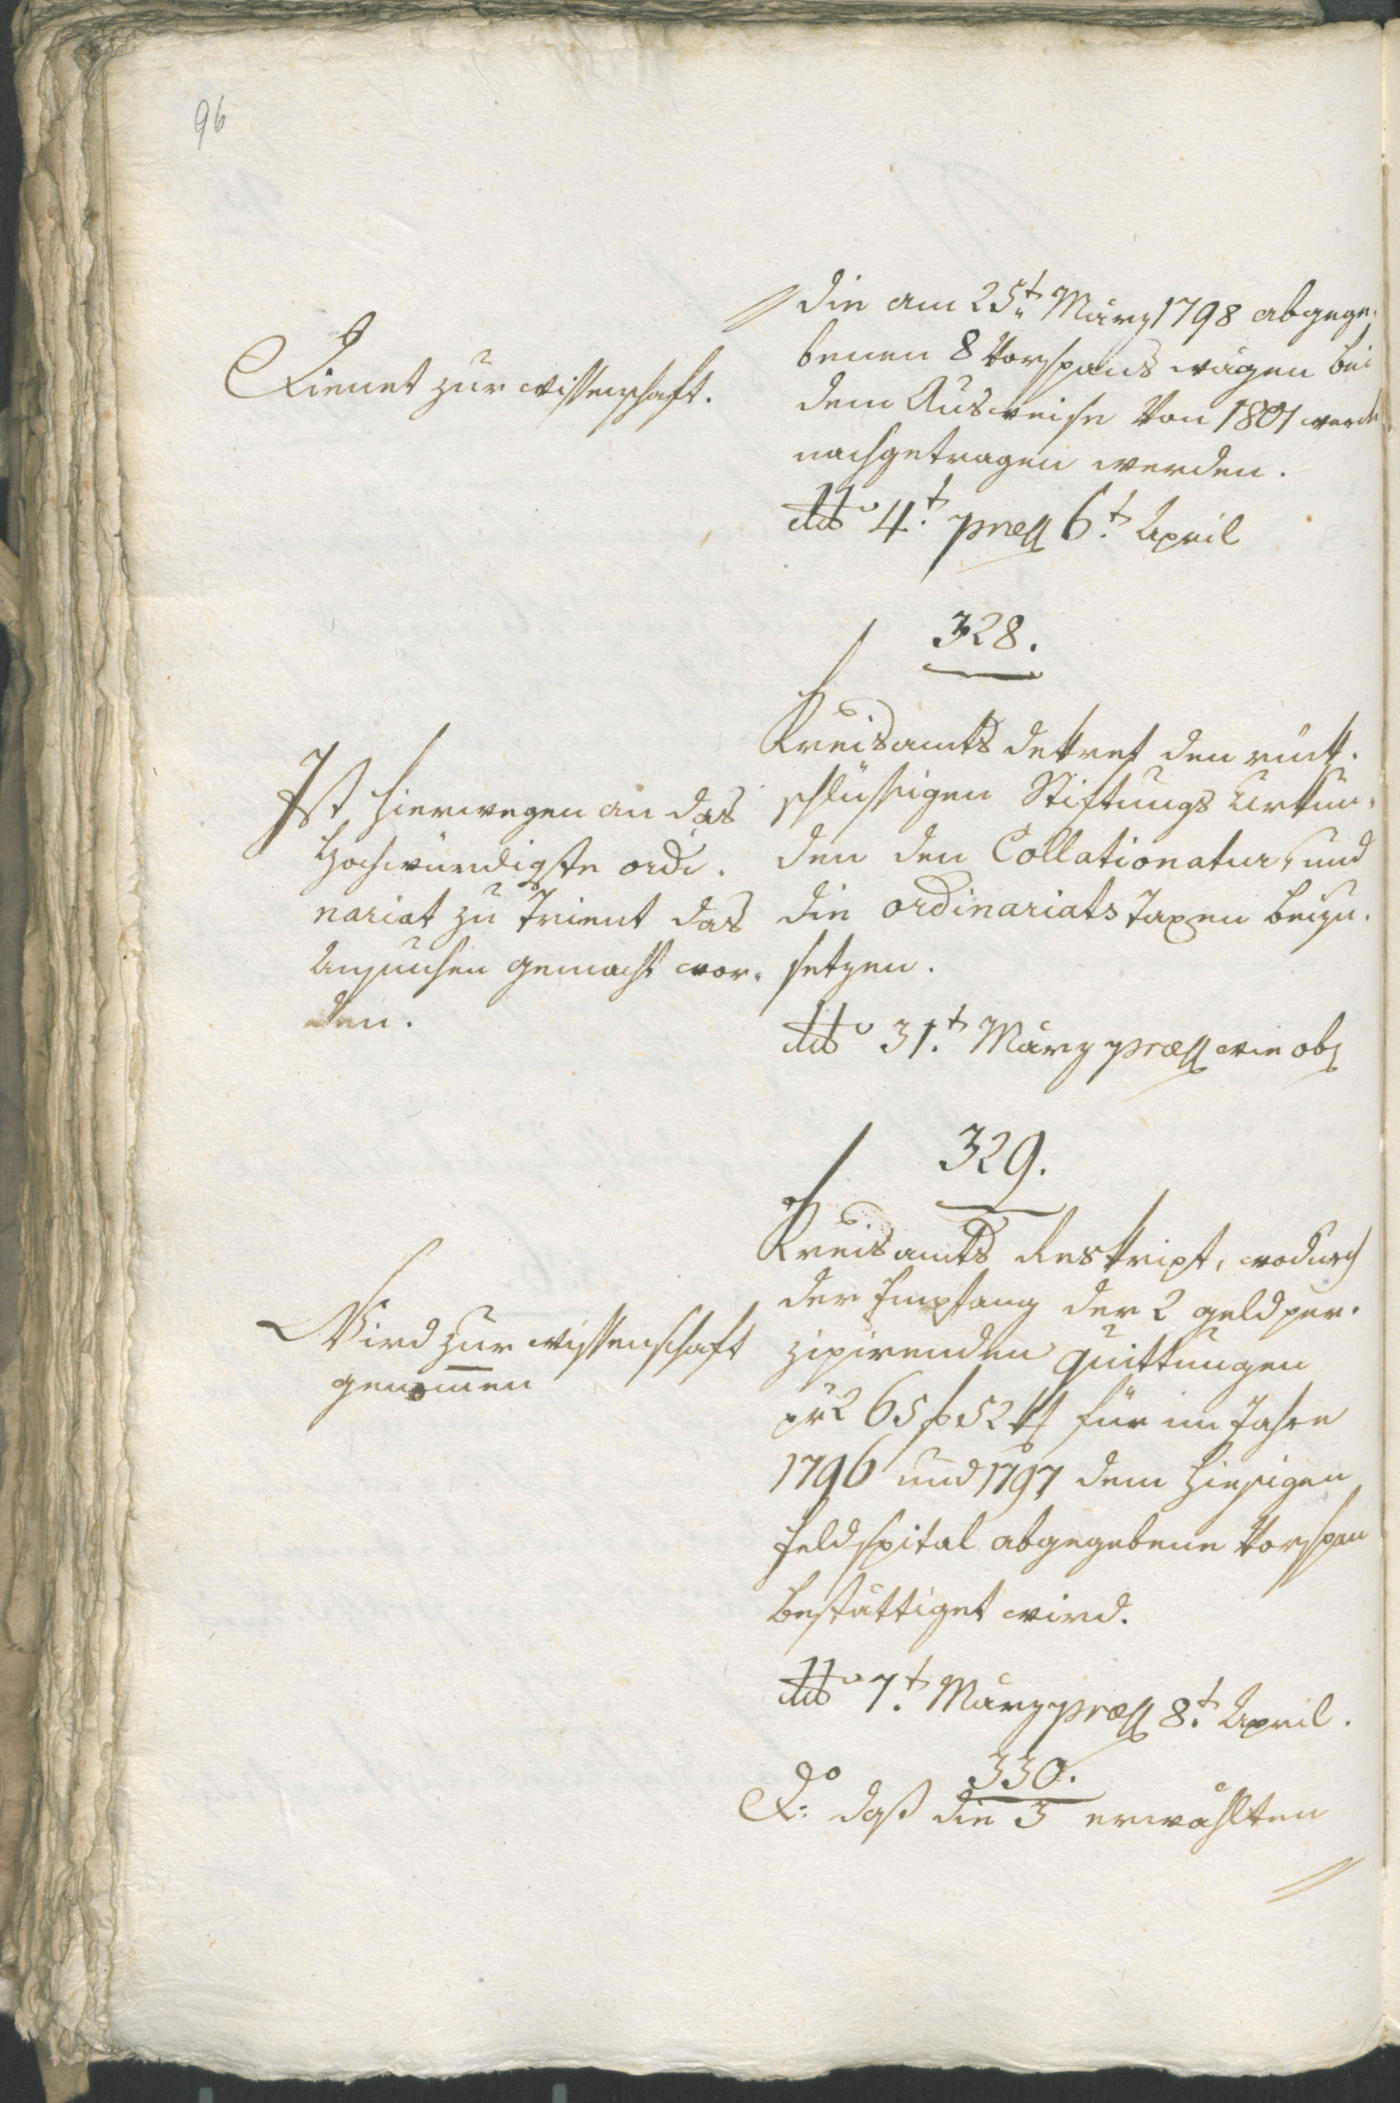 96
Dienet zur wissenschaft.
// die am 25t. März 1798 abgege-
benen 8 Vorspans wägen bei
dem Ausweise von 1801 werde
nachgetragen werden.
ddo 4t. præs 6t. April
328.
Ist hierwegen an das
Hochwürdigste ordi-
nariat zu Trient das
Ansuchen gemacht wor-
den.
Kreisamts dekret den rück-
schlüssigen Stiftungs Urkun-
den den Collationatur, und
die ordinariats Taxen beizu-
setzen.
ddo 31t. März præs wie obs
329.
Wird zur wissenschaft
genomen
Kreisamts Reskript, wodurch
der Empfang der 2 geldper-
zipirenden Quittungen
pr 265 f 52 x für im Jahre
1796 und 1797 dem hiesigen
feldspital abgegebene Vorspan
bestättiget wird.
ddo 7t. März præs 8t. April.
330.
Do: daß die 3 erwählten
//